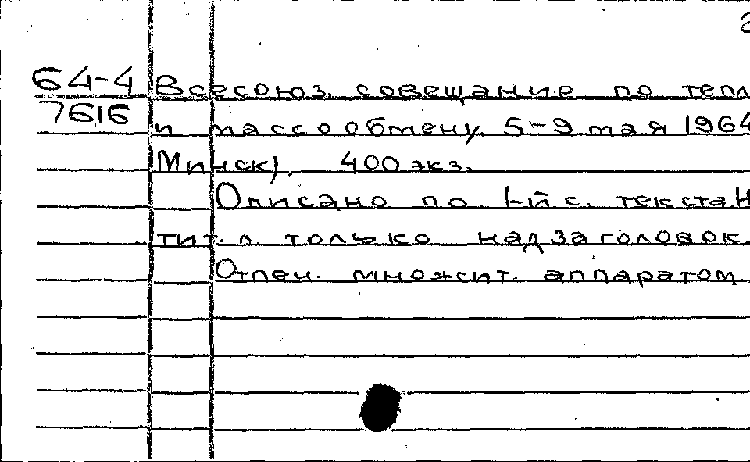 64-4 Всесоюз. совещание по тепл
7616 и массообмену. 5-9 мая 1964
Минск). 400 экз.
Описано по 1-й с. текста. Н
тит. л. только надзаголовок.
Отпеч. множит. аппаратом.